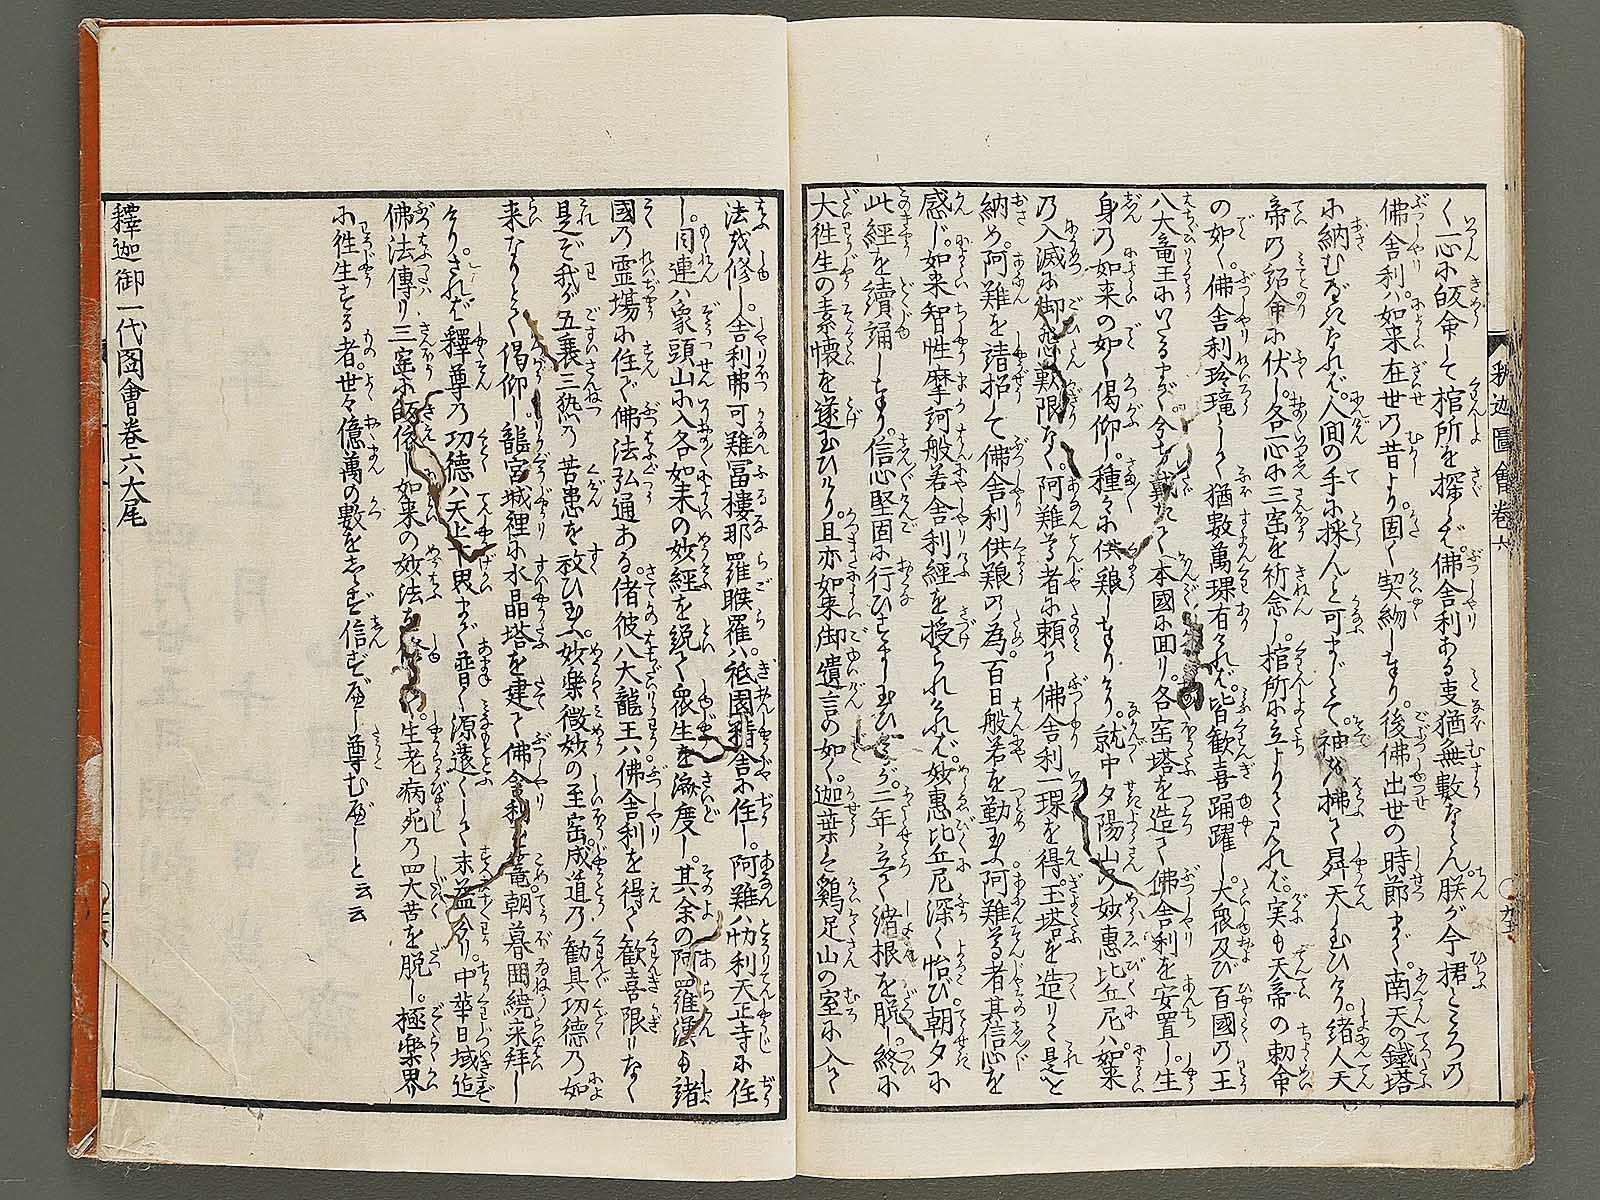 く一心に皈命して棺所を探れば佛舎利ある支猶無數ならん朕が今捃ところの
佛舎利ハ如来在世乃昔より固く契約しまゐり後佛出世の時節まで南天の鐵塔
に納むべきなれば人間の手に採人と可まじとて袖以拂て昇天し玉ひけり諸人天
帝乃詔命に伏し各一心に三宝を祈念し棺所に立よりて見れば実も天帝の勅命
の如く佛舎利玲瓏として猶數萬環有ければ皆歓喜踊躍し大衆及び百國乃王
八大竜王にいたるまで本國に回り各宝塔を造て佛舎利を安置し生
身乃如来の如く偈仰し種々に供粮しまゐりけり就中夕陽山の妙惠比丘尼ハ如来
乃入滅に御悲歎限なく阿難尊者に頼て佛舎利一環を得玉塔を造りて是を
納め阿難を請招して佛舎利供粮の為百日般若を勤玉ふ阿難尊者其信心を
感じ如来智性摩訶般若舎利經を授られければ妙惠比丘尼深く怡び朝夕に
此經を續誦しまゐり信心堅固に行ひすまし玉ひけるが二年立て諸根を脱し終に
大徃生の素懐を遂玉ひけり且亦如来御遺言の如く迦葉ハ鷄足山の室に入て
釈迦圖會卷六
法を修し舎利弗可難冨樓那羅睺羅ハ祗園精舎に住し阿難ハ忉利天正寺に住
し目連ハ象頭山に入各如来の妙經を説て衆生を濟度し其余の阿羅漢も諸
國乃霊場に住で佛法弘通ある偖彼八大龍王ハ佛舎利を得て歓喜限りなく
是ぞ我が五衰三熱乃苦患を救ひ玉ふ妙樂微妙の至宝成道乃勧具功德乃如
来なりとて偈仰し龍宮城裡に水晶塔を建て佛舎利を籠朝暮囲繞来拜し
けりされば釋尊乃功德ハ天上下界まで普く源遠くして末益々今り中華日域迄
佛法傳り三宝に皈依し如来の妙法を修し生老病死乃四大苦を脱し極樂界
に徃生する者世々億萬の數をしらず信ずべし尊むべしと云云
釋迦御一代图會卷六大尾